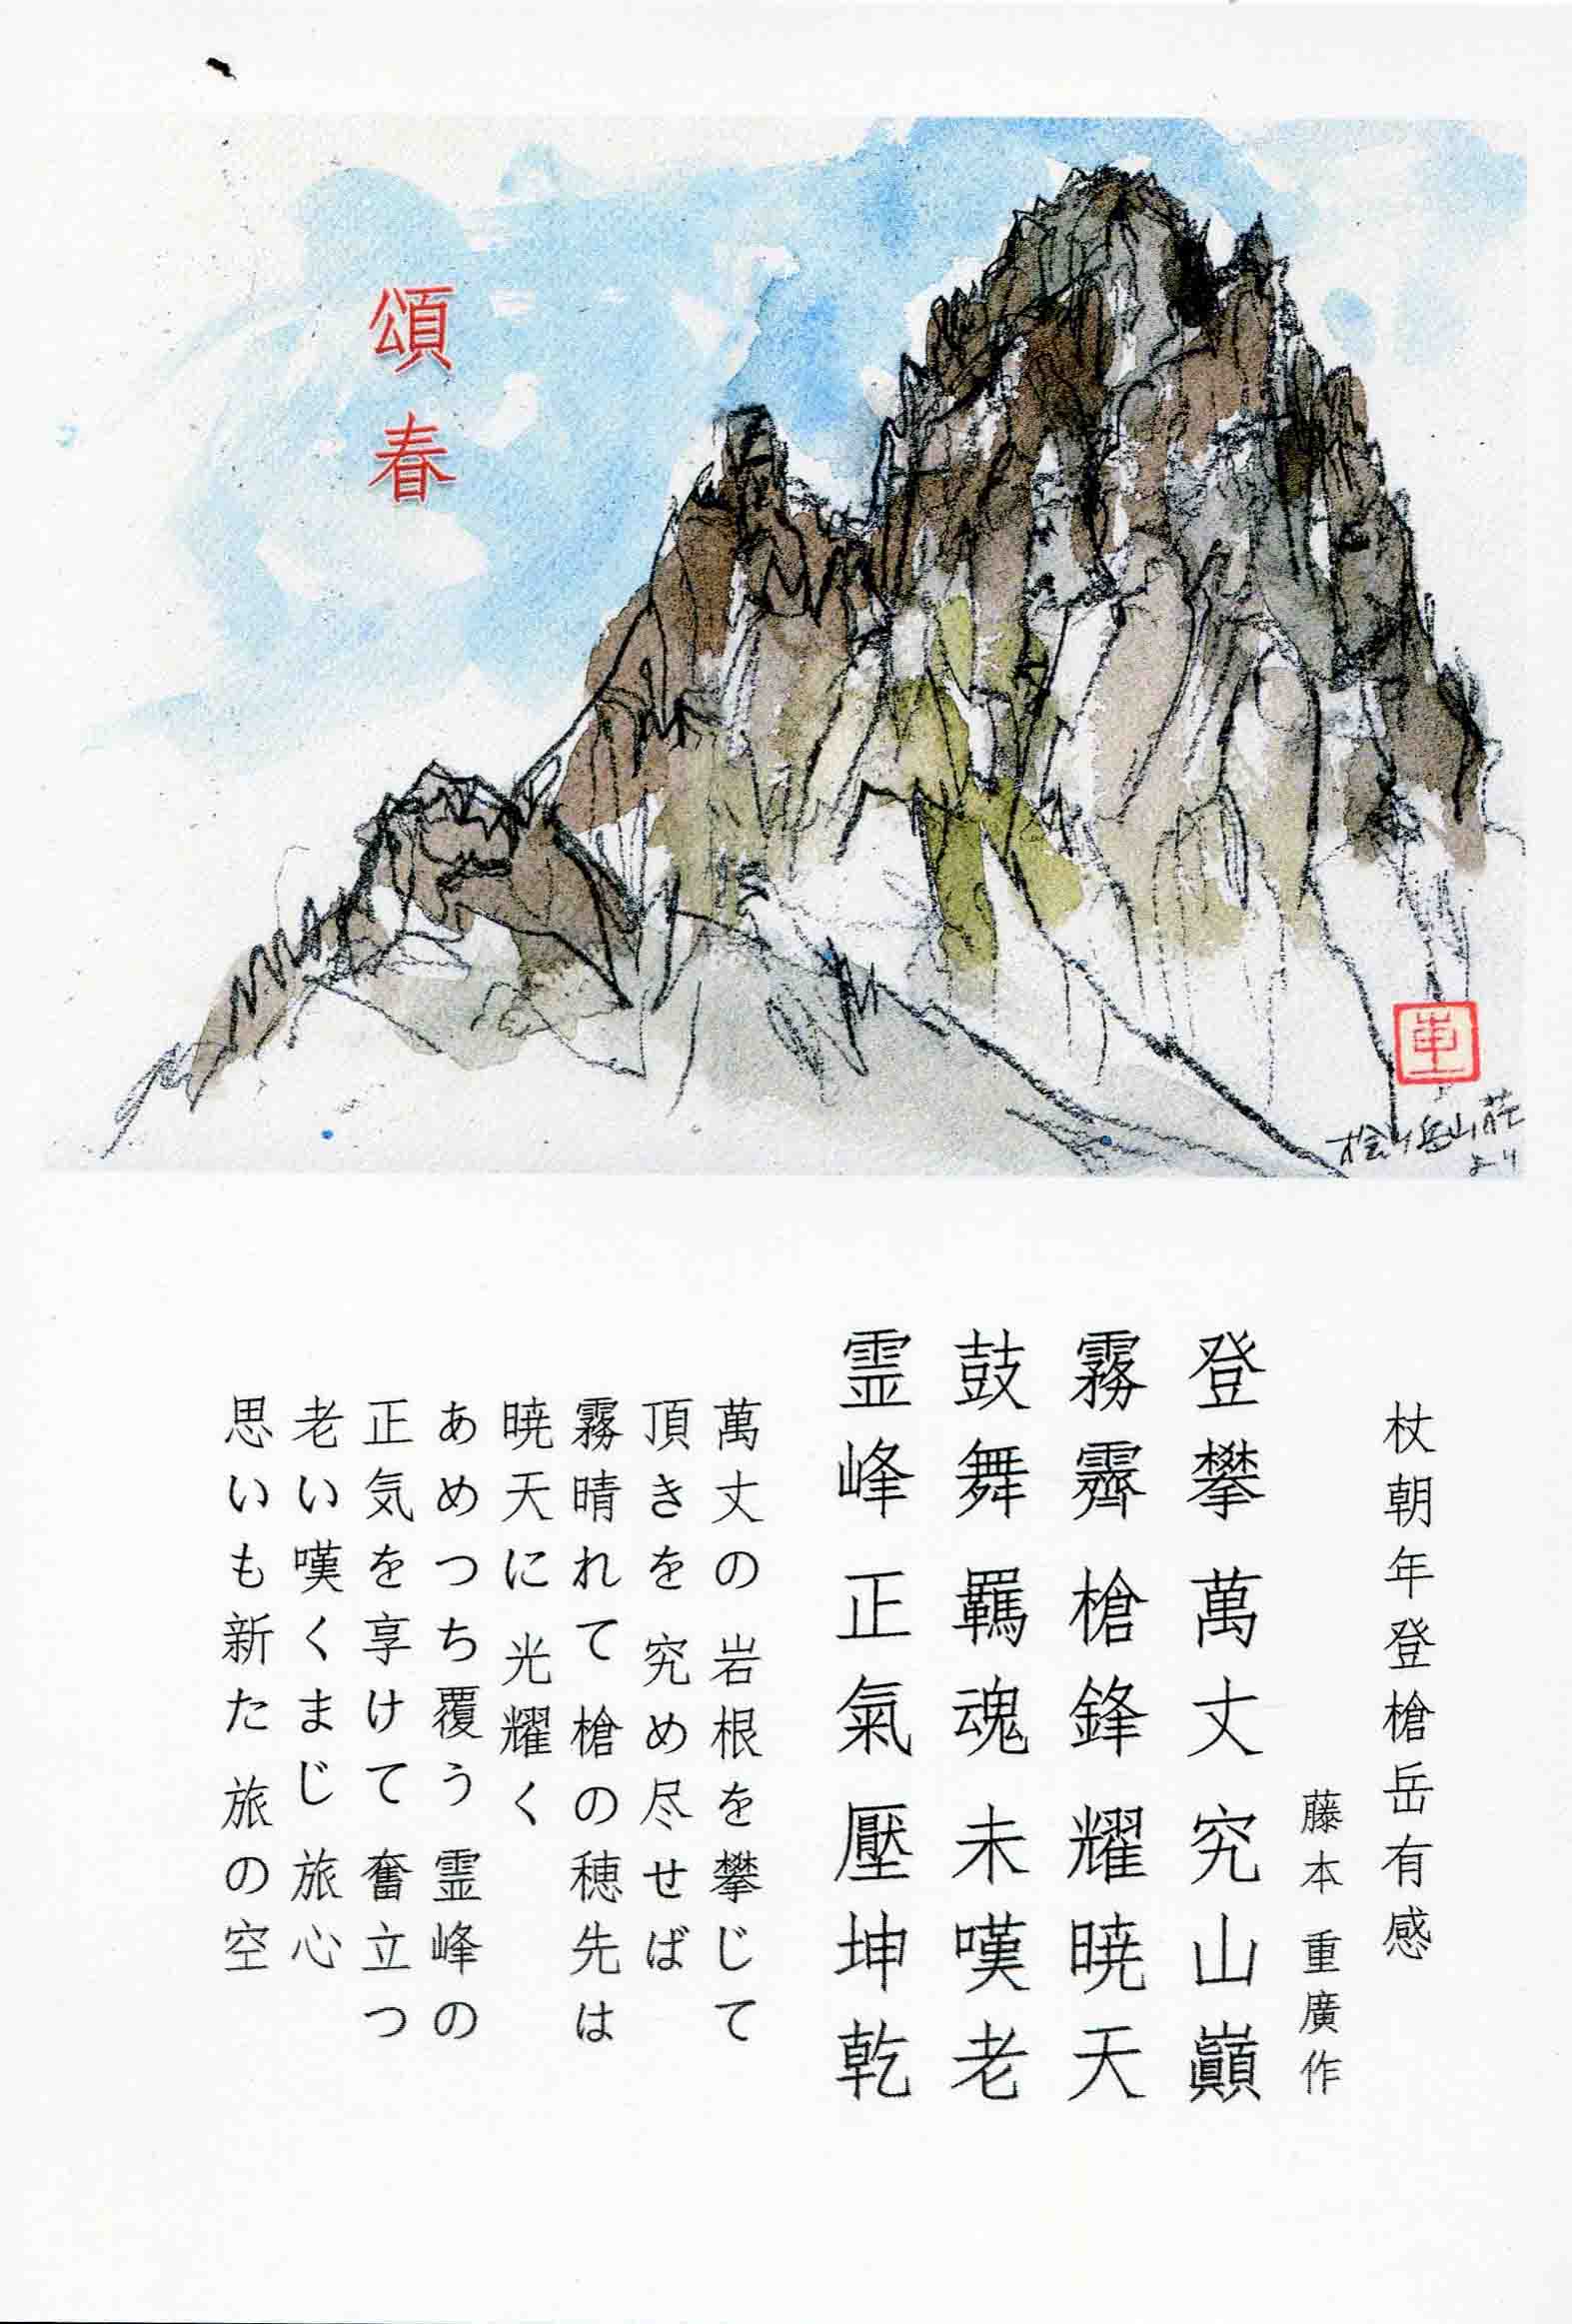 頌春
重
槍ヶ岳山荘
より
杖朝年登槍岳有感
藤本 重廣作
登攀萬丈究山巓
霧霽槍鋒耀暁天
鼓舞羈魂未嘆老
霊峰正氣壓坤乾
萬丈の 岩根を攀じて
頂きを 究め尽せば
霧晴れて 槍の穂先は
暁天に 光耀く
あめつち覆う 霊峰の
正気を享けて 奮立つ
老い嘆くまじ 旅心
思いも新た 旅の空